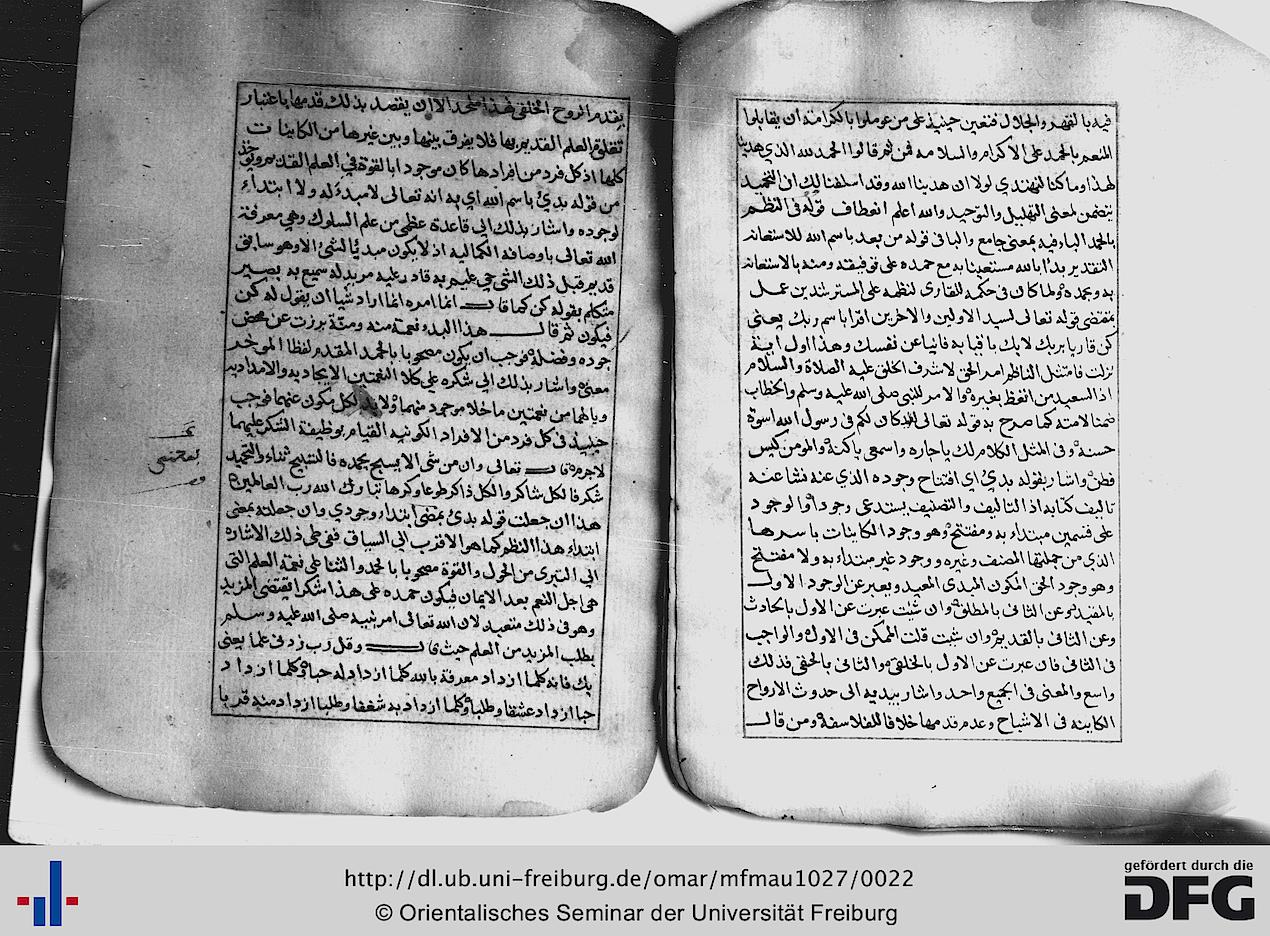 فيه بالقهر والجلال فتعين حينيذ على من عوملوا بالكرامة ان يقابلوا
المنعم بالحمد على الاكرام والسلامه فمن ثم قالوا الحمد لله الذي هدينا
لهذا وما كنا لنهتدي لولا ان هدينا الله وقد اسلفنا لك ان التحميد
يتضمن لمعنى التهليل والتوحيد والله اعلم انعطاف قوله في النظم
بالحمد الباء فيه بمعنى جامع والبا في قوله من بعد باسم الله للاستعانه
التقدير بدا بالله مستعينا به مع حمده على توفيقه ومنه بالاستعانه
به وبحمده ولما كان في حكمه للقارى لنظمه على المسترشدين عمل
بمقتضى قوله تعالى لسيد الاولين والاخرين اقرا باسم ربك يعني
كن قاريا بربك لا بك باقيا به فانيا عن نفسك وهذا اول اية
نزلت فامتثل الناظم امر الحق لاشرف الخلق عليه الصلاة والسلام
اذ السعيد من اتعظ بغيره والامر للنبي صلى الله عليه وسلم والخطاب
ضمنا لامته كما صرح به قوله تعالى لقد كان لكم في رسول الله اسوة
حسنة وفي المثل الكلام لك ياجاره واسمعى ياكنة والمومن كيس
فطن واشار بقوله بدئ اي افتتاح وجوده الذي عنه نشا عنه
تاليف كتابه اذ التاليف والتصنيف يستدعى وجودا والوجود
على قسمين مبتداء به ومفتتح وهو وجود الكاينات باسرها
الذي من جملتها المصنف وغيره ووجود غير مبتداء به ولا مفتتح
وهو وجود الحق المكون المبدى المعيد ويعبر عن الوجود الاول
بالمقيد وعن الثاني بالمطلق وان شيت عبرت عن الاول بالحادث
وعن الثانى بالقديم وان شيت قلت الممكن في الاول والواجب
في الثاني فان عبرت عن الاول بالخلقي والثانى بالحقي فذلك
واسع والمعنى في الجميع واحد واشار ببديه الى حدوث الارواح
الكاينه في الاشباح وعدم قدمها خلافا للفلاسفة ومن قال
بقدم الروح الخلقي فهذا ملحد الا ان يقصد بذلك قدمها باعتبار
تعلق العلم القديم بها فلا يفرق بينها وبين غيرها من الكاينات
كلها اذ كل فرد من افرادها كان موجودا بالقوة في العلم القديم ويوخذ
من قوله بدئ باسم الله اي به انه تعالى لا مبدء له ولا ابتداء
لوجوده واشار بذلك الى قاعدة عظمى من علم السلوك وهي معرفة
الله تعالى باوصافه الكماليه اذ لا يكون مبديا لشئ الا وهو سابق
قديم قبل ذلك الشي حي عليم به قادر عليه مريد له سميع به بصير
متكلم بقوله كن كما قال انما امره اذا اراد شيا ان يقول له كن
فيكون ثم قال هذا البدو نعمة منه ومنة برزت عن محض
جوده وفضله فوجب ان يكون مصحوبا بالحمد المقدم لفظا الموخر
معنى واشار بذلك الى شكره على كلا النعمتين الايجاديه والامداديه
ويالهما من نعمتين ما خلا موجود منهما ولا بد لكل مكون عنهما فوجب
حينيذ في كل فرد من الافراد الكونيه القيام بوظيفة الشكر عليهما
لاجرم قال تعالى وان من شى الا يسبح بحمده فالتسبيح ثناء والتحميد
شكر فالكل شاكر والكل ذاكر طوعا وكرها تبارك الله رب العالمين
هذا ان جعلت قوله بدئ بمعنى ابتداء وجودي وان جعلته بمعنى
ابتداء هذا النظم كما هو الاقرب الى السياق ففي طى ذلك الاشاره
الى التبرى من الحول والقوة مصحوبا بالحمد والثنا على نعمة العلم التى
هي اجل النعم بعد الايمان فيكون حمده على هذا شكرا يقتضى المزيد
وهو في ذلك متعبد لان الله تعالى امر نبيه صلى الله عليه وسلم
بطلب المزيد من العلم حيث قال وقل رب زدنى علما يعني
بك فانه كلما ازداد معرفة بالله كلما ازداد له حبا وكلما ازداد
حبا ازداد عشقا وطلبا وكلما ازداد به شغفا وطلبا ازداد منه قربا
http://dl.ub.uni-freiburg.de/omar/mfmau1027/0022
© Orientalisches Seminar der Universität Freiburg
gefördert durch die
DFG